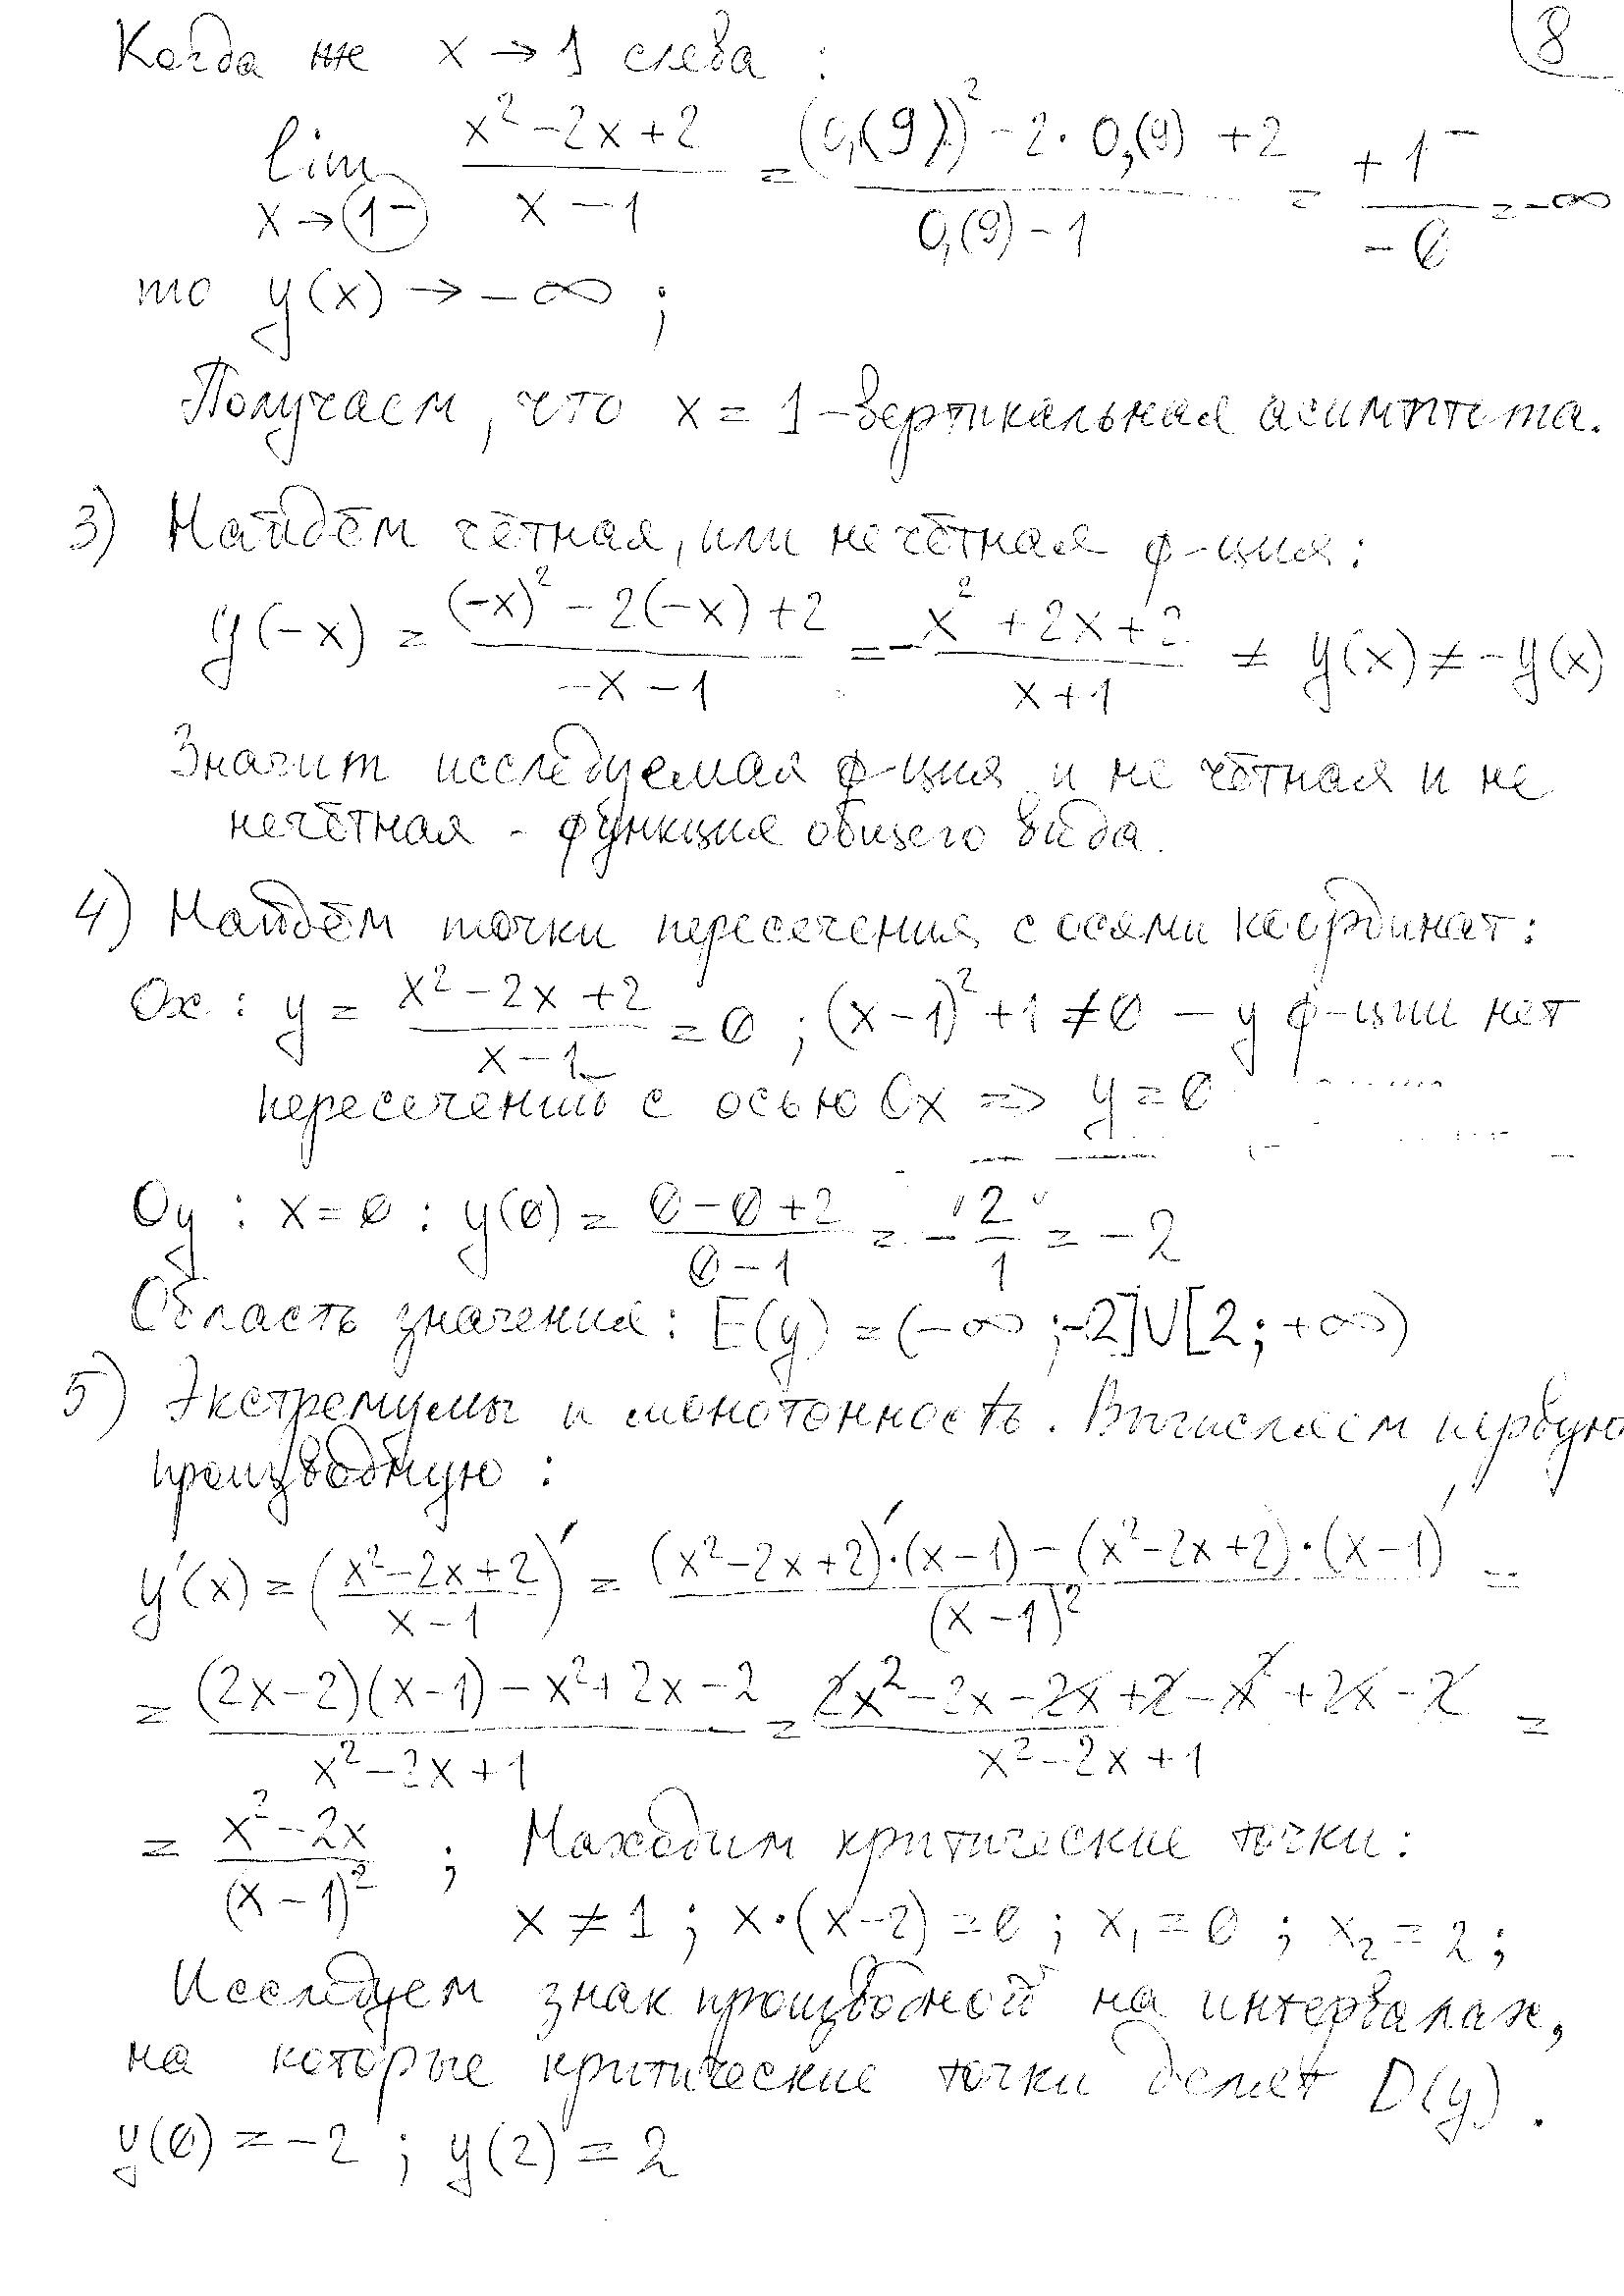 8
Когда же x → 1 слева :
lim x→1⁻ (x² - 2x + 2)/(x - 1) = ((0,(9))² - 2· 0,(9) + 2)/(0,(9) - 1) = (+1⁻)/(-0) = -∞
то y(x) → -∞ ;
Получаем, что x = 1 - вертикальная асимптота.
3) Найдём чётная, или нечётная ф-ция:
y(-x) = ((-x)² - 2(-x) + 2)/(-x - 1) = - (x² + 2x + 2)/(x + 1) ≠ y(x) ≠ -y(x)
Значит исследуемая ф-ция и не чётная и не
нечётная - функция общего вида.
4) Найдём точки пересечения с осями координат:
Ox : y = (x² - 2x + 2)/(x - 1) = 0 ; (x - 1)² + 1 ≠ 0 - у ф-ции нет
пересечений с осью Ox => y = 0
Oy : x = 0 : y(0) = (0 - 0 + 2)/(0 - 1) = - 2/1 = -2
Область значения: E(y) = (-∞ ; -2]U[2 ; +∞)
5) Экстремумы и монотонность. Вычисляем первую
производную :
y'(x) = ((x² - 2x + 2)/(x - 1))' = ((x² - 2x + 2)'·(x - 1) - (x² - 2x + 2)·(x - 1)')/(x - 1)² =
= ((2x - 2)(x - 1) - x² + 2x - 2)/(x² - 2x + 1) = (2x² - 2x - 2x + 2 - x² + 2x - 2)/(x² - 2x + 1) =
= (x² - 2x)/(x - 1)² ; Находим критические точки:
x ≠ 1 ; x·(x - 2) = 0 ; x₁ = 0 ; x₂ = 2 ;
Исследуем знак производной на интервалах,
на которые критические точки делят D(y).
y(0) = -2 ; y(2) = 2